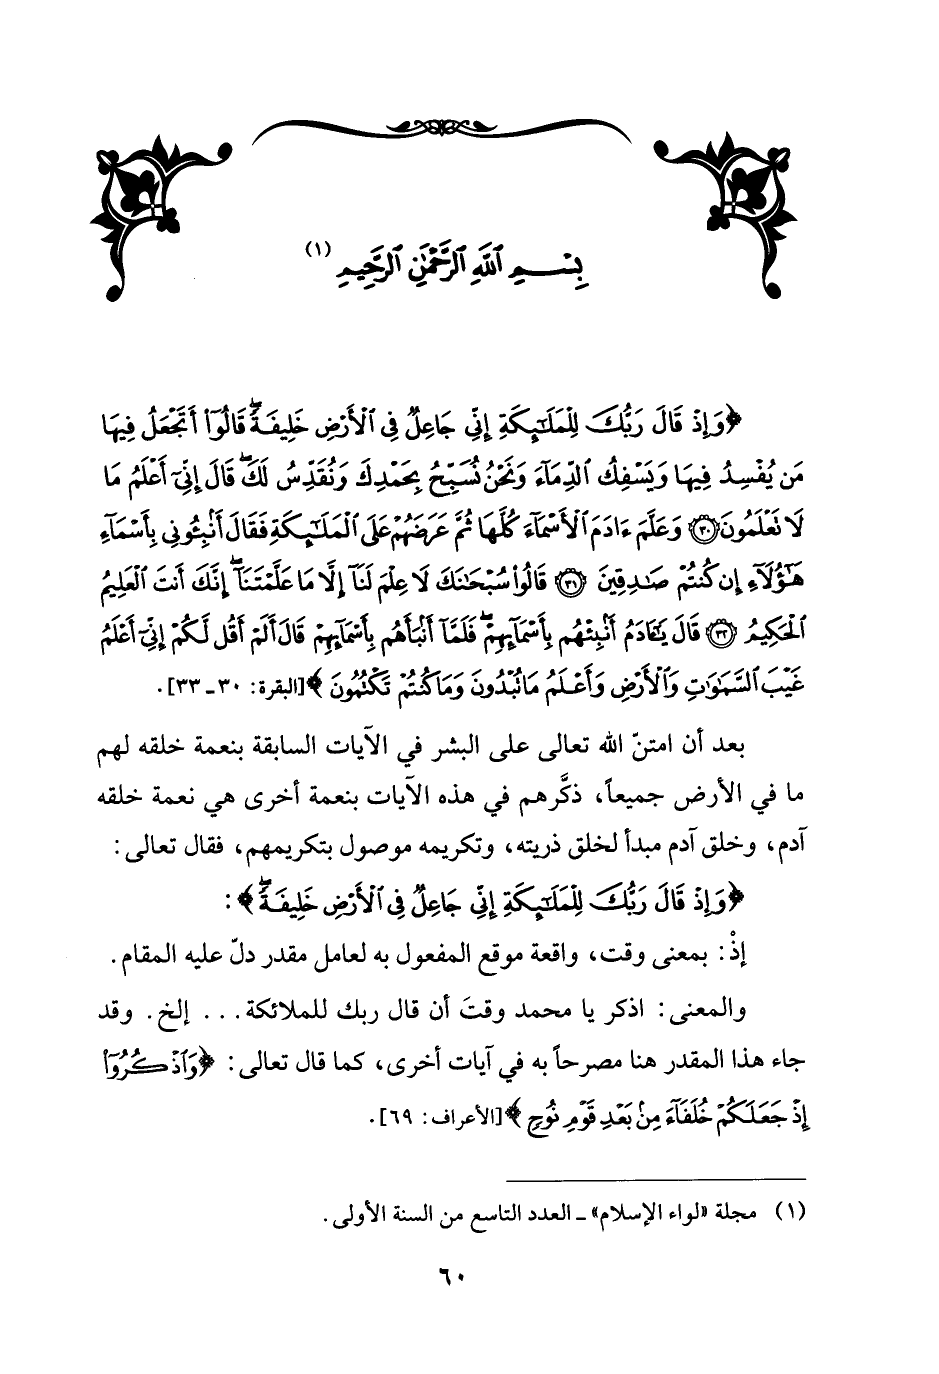 بِسْمِ ٱللَّهِ ٱلرَّحْمَٰنِ ٱلرَّحِيمِ (١)
﴿وَإِذْ قَالَ رَبُّكَ لِلْمَلَٰٓئِكَةِ إِنِّى جَاعِلٌ فِى ٱلْأَرْضِ خَلِيفَةً ۖ قَالُوٓا۟ أَتَجْعَلُ فِيهَا
مَن يُفْسِدُ فِيهَا وَيَسْفِكُ ٱلدِّمَآءَ وَنَحْنُ نُسَبِّحُ بِحَمْدِكَ وَنُقَدِّسُ لَكَ ۖ قَالَ إِنِّىٓ أَعْلَمُ مَا
لَا تَعْلَمُونَ ۝٣٠ وَعَلَّمَ ءَادَمَ ٱلْأَسْمَآءَ كُلَّهَا ثُمَّ عَرَضَهُمْ عَلَى ٱلْمَلَٰٓئِكَةِ فَقَالَ أَنۢبِـُٔونِى بِأَسْمَآءِ
هَٰٓؤُلَآءِ إِن كُنتُمْ صَٰدِقِينَ ۝٣١ قَالُوا۟ سُبْحَٰنَكَ لَا عِلْمَ لَنَآ إِلَّا مَا عَلَّمْتَنَآ ۖ إِنَّكَ أَنتَ ٱلْعَلِيمُ
ٱلْحَكِيمُ ۝٣٢ قَالَ يَٰٓـَٔادَمُ أَنۢبِئْهُم بِأَسْمَآئِهِمْ ۖ فَلَمَّآ أَنۢبَأَهُم بِأَسْمَآئِهِمْ قَالَ أَلَمْ أَقُل لَّكُمْ إِنِّىٓ أَعْلَمُ
غَيْبَ ٱلسَّمَٰوَٰتِ وَٱلْأَرْضِ وَأَعْلَمُ مَا تُبْدُونَ وَمَا كُنتُمْ تَكْتُمُونَ﴾ [البقرة: ٣٠ ـ ٣٣].
بعد أن امتنّ الله تعالى على البشر في الآيات السابقة بنعمة خلقه لهم
ما في الأرض جميعاً، ذكَّرهم في هذه الآيات بنعمة أخرى هي نعمة خلقه
آدم، وخلق آدم مبدأ لخلق ذريته، وتكريمه موصول بتكريمهم، فقال تعالى:
﴿وَإِذْ قَالَ رَبُّكَ لِلْمَلَٰٓئِكَةِ إِنِّى جَاعِلٌ فِى ٱلْأَرْضِ خَلِيفَةً ۖ﴾:
إذْ: بمعنى وقت، واقعة موقع المفعول به لعامل مقدر دلّ عليه المقام.
والمعنى: اذكر يا محمد وقتَ أن قال ربك للملائكة... إلخ. وقد
جاء هذا المقدر هنا مصرحاً به في آيات أخرى، كما قال تعالى: ﴿وَٱذْكُرُوٓا۟
إِذْ جَعَلَكُمْ خُلَفَآءَ مِنۢ بَعْدِ قَوْمِ نُوحٍ﴾ [الأعراف: ٦٩].
(١) مجلة «لواء الإسلام» ـ العدد التاسع من السنة الأولى.
٦٠